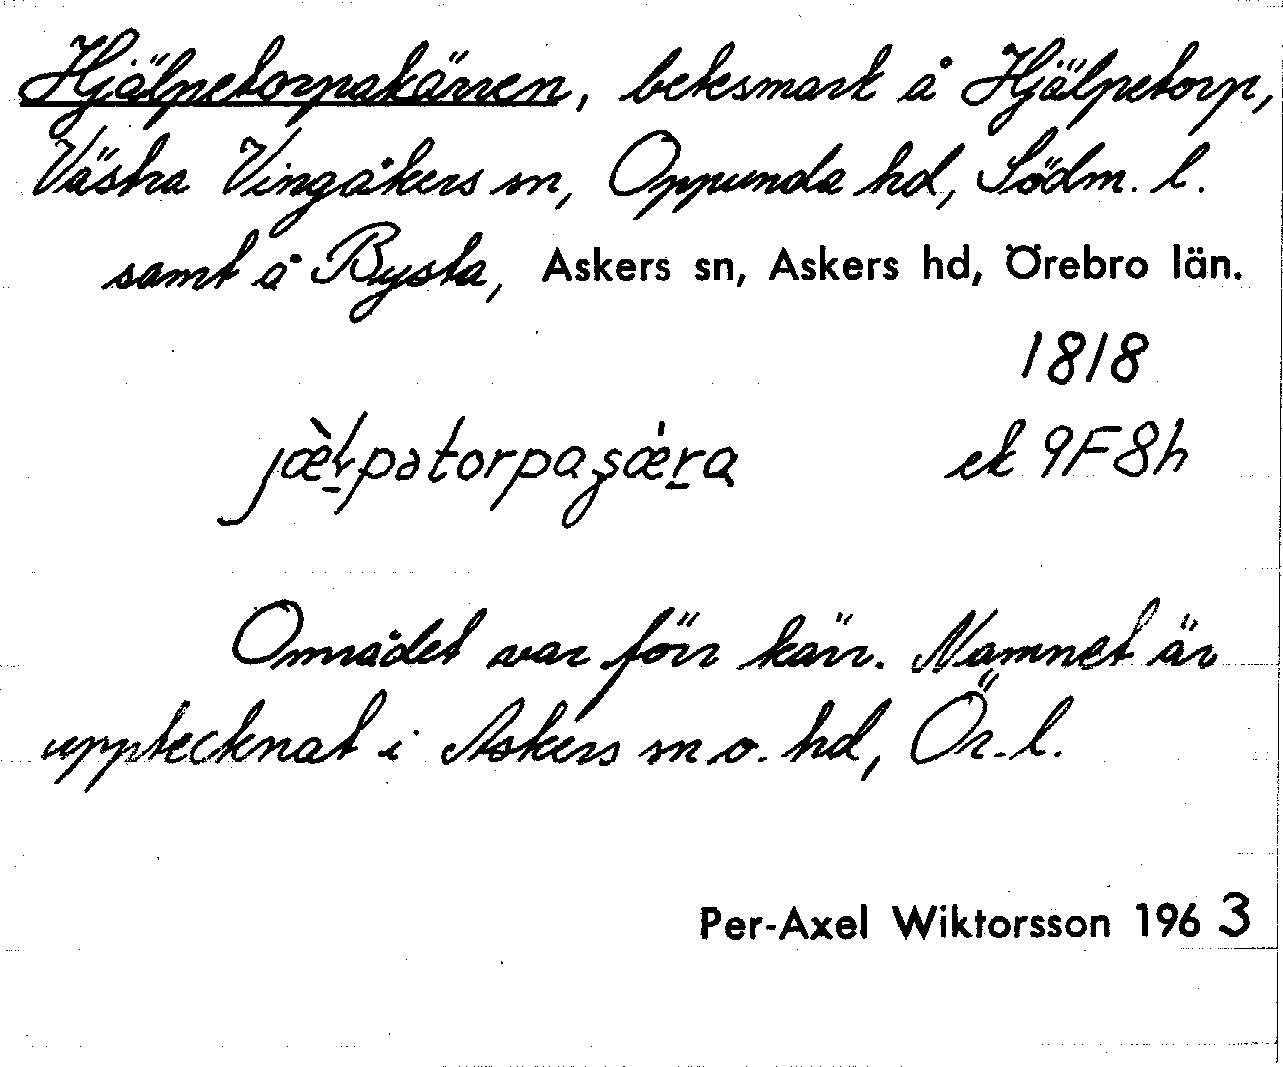 Hjälpetorpakärren, betesmark å Hjälpetorp,
Västra Vingåkers sn, Oppunda hd, Södm. l.
samt å Bysta, Askers sn, Askers hd, Örebro län.
1818
ek 9F8h
Området var förr kärr. Namnet är
upptecknat i Askers sn o. hd, Ör. l.
Per-Axel Wiktorsson 1963